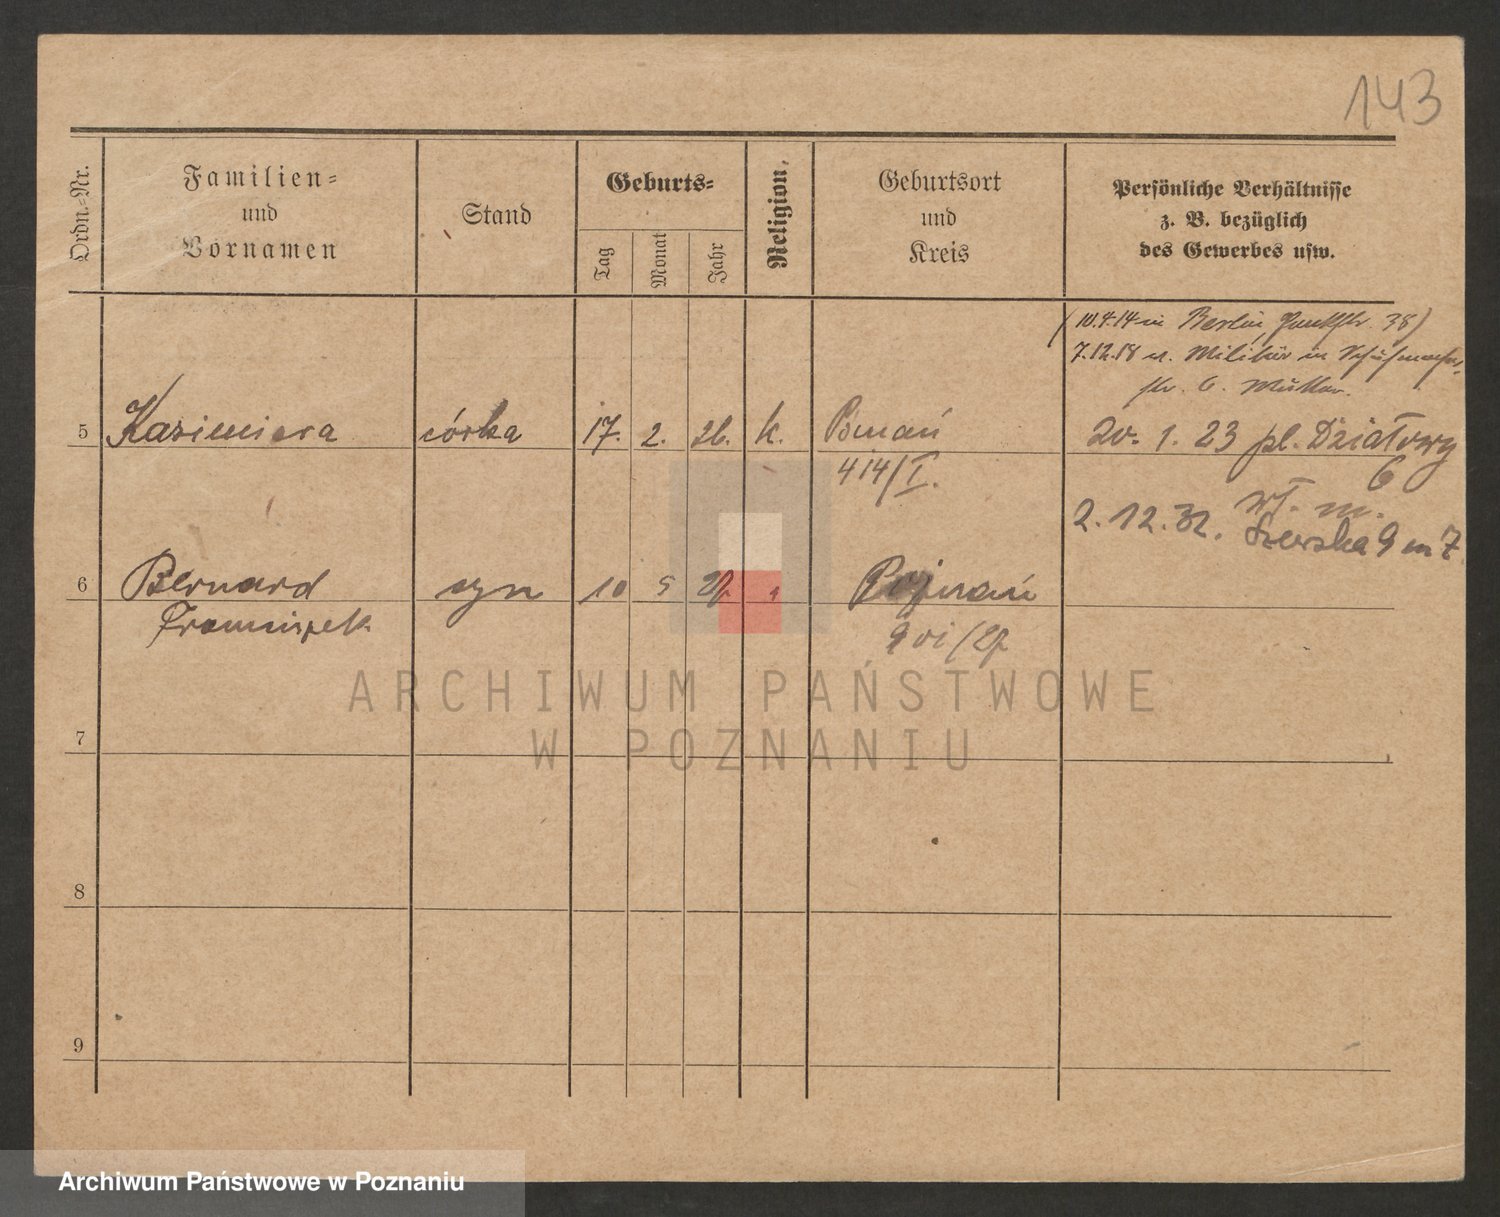 143
Ordn.-Nr.
Familien-
und
Vornamen
Stand
Geburts-
Tag
Monat
Jahr
Religion.
Geburtsort
und
Kreis
Persönliche Verhältnisse
z. B. bezüglich
des Gewerbes usw.
(10.4.14 in Berlin, 38)
7.12.18 v. Militär in
str. 6. Mutter.
5 Kazimiera córka 17. 2. 26. k. Poznań 20. 1. 23 pl. Działowy
414/I. 6
2.12.32. wł. m.
9 m 7.
6 Bernard syn 10 5 Poznań
Franciszek
7
8
9
ARCHIWUM PAŃSTWOWE
W POZNANIU
Archiwum Państwowe w Poznaniu